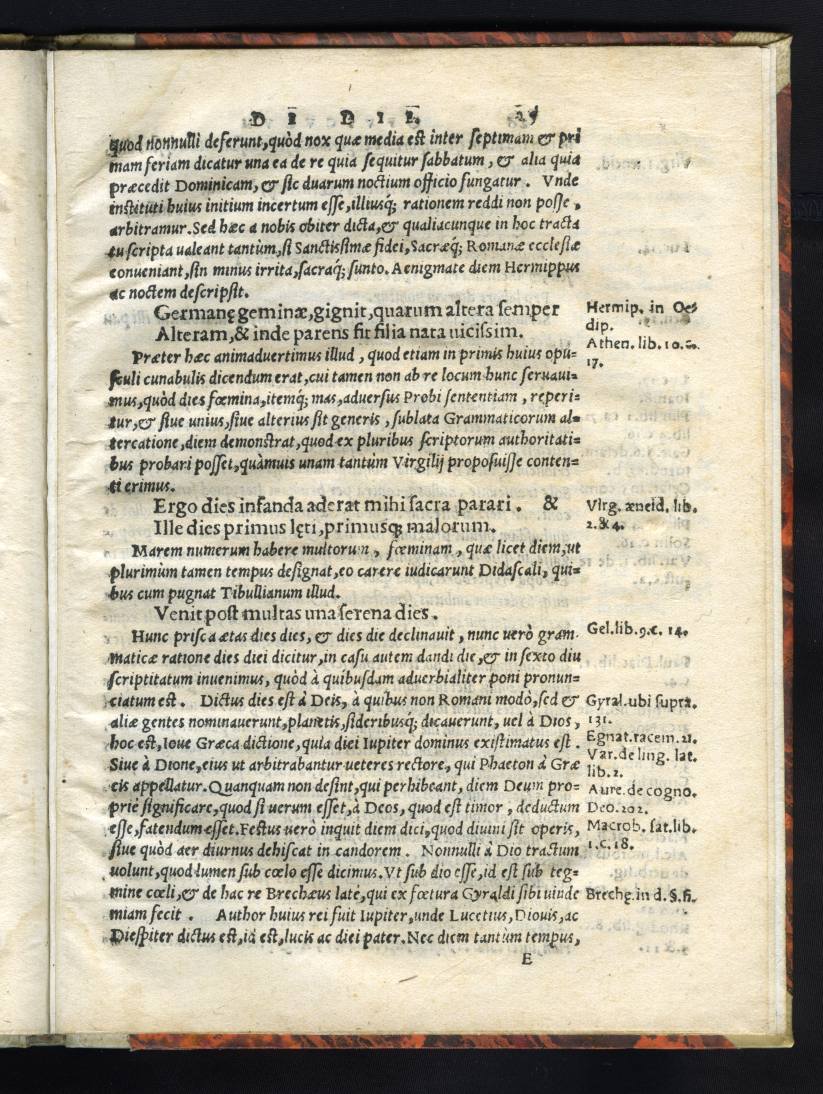 D E D I E. 25
quod nonnulli deferunt,quòd nox quæ media est inter septimam & pri
mam feriam dicatur una ea de re quia sequitur sabbatum, & alia quia
præcedit Dominicam, & sic duarum noctium officio fungatur. Vnde
instituti huius initium incertum esse,illiusq; rationem reddi non posse,
arbitramur.Sed hæc a nobis obiter dicta,& qualiacunque in hoc tracta
tu scripta ualeant tantùm,si Sanctissimæ fidei,Sacræq; Romanæ ecclesiæ
conueniant,sin minus irrita,sacraq; sunto. Aenigmate diem Hermippus
ac noctem descripsit.
Germanę geminæ,gignit,quarum altera semper
Alteram,& inde parens fit filia nata uicissim.
Hermip. in Oe-
dip.
Athen. lib. 10.c.
17.
Præter hæc animaduertimus illud, quod etiam in primis huius opu-
sculi cunabulis dicendum erat,cui tamen non ab re locum hunc seruaui-
mus,quòd dies fœmina,itemq; mas,aduersus Probi sententiam, reperi-
tur,& siue unius,siue alterius sit generis, sublata Grammaticorum al-
tercatione,diem demonstrat,quod ex pluribus scriptorum authoritati-
bus probari posset,quàmuis unam tantùm Virgilij proposuisse conten-
ti erimus.
Ergo dies infanda aderat mihi sacra parari. &
Ille dies primus lęti,primusq; malorum.
Virg. æneid. lib.
2.&4.
Marem numerum habere multorum, fœminam, quæ licet diem,ut
plurimùm tamen tempus designat,eo carere iudicarunt Didascali, qui-
bus cum pugnat Tibullianum illud.
Venit post multas una serena dies.
Hunc prisca ætas dies dies, & dies die declinauit, nunc uerò gram-
maticæ ratione dies diei dicitur,in casu autem dandi die,& in sexto diu
scriptitatum inuenimus, quòd à quibusdam aduerbialiter poni pronun-
ciatum est. Dictus dies est à Deis, à quibus non Romani modò,sed &
aliæ gentes nominauerunt,planetis,sideribusq; dicauerunt, uel à Dios,
hoc est,Ioue Græca dictione,quia diei Iupiter dominus existimatus est.
Siue à Dione,eius ut arbitrabantur ueteres rectore, qui Phaeton à Græ
cis appellatur.Quanquam non desint,qui perhibeant, diem Deum pro-
prie significare,quod si uerum esset,à Deos, quod est timor, deductum
esse,fatendum esset.Festus uerò inquit diem dici,quod diuini sit operis,
siue quòd aer diurnus dehiscat in candorem. Nonnulli à Dio tractum
uolunt,quod lumen sub cœlo esse dicimus.Vt sub dio esse,id est sub teg-
mine cœli,& de hac re Brechæus latè,qui ex fœtura Gyraldi sibi uinde
miam fecit. Author huius rei fuit Iupiter,unde Lucetius,Diouis,ac
Diespiter dictus est,id est,lucis ac diei pater.Nec diem tantùm tempus,
Gel.lib.9.c. 14.
Gyral.ubi supra.
131.
Egnat.racem.21.
Var.de ling. lat.
lib.2.
Aure.de cogno.
Deo.202.
Macrob. sat.lib.
1.c.18.
Brechę.in d.§.fi.
E